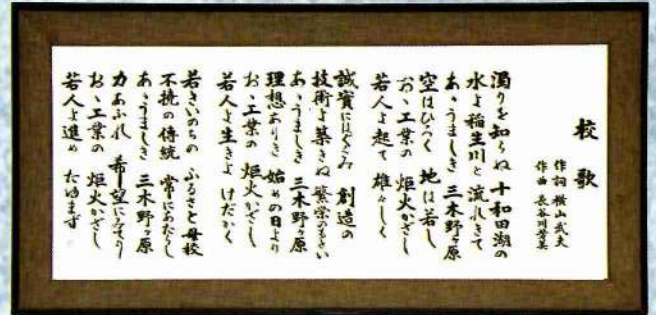 校歌
作詞 横山武夫
作曲 長谷川芳美
濁りを知らぬ 十和田湖の
水よ稲生川と 流れきて
あゝうましき 三本野ヶ原
空はひろく 地は若し
おゝ工業の 炬火かざし
若人よ起て 雄々しく
誠實にはぐくみ 創造の
技術よ築きぬ 繁栄のもとい
あゝうましき 三本野ヶ原
理想ありき 始めの日より
おゝ工業の 炬火かざし
若人よ生きよ けだかく
若きいのちの ふるさと母校
不撓の傳統 常にあたらし
あゝうましき 三本野ヶ原
力あふれ 希望にみてり
おゝ工業の 炬火かざし
若人よ進め たゆまず